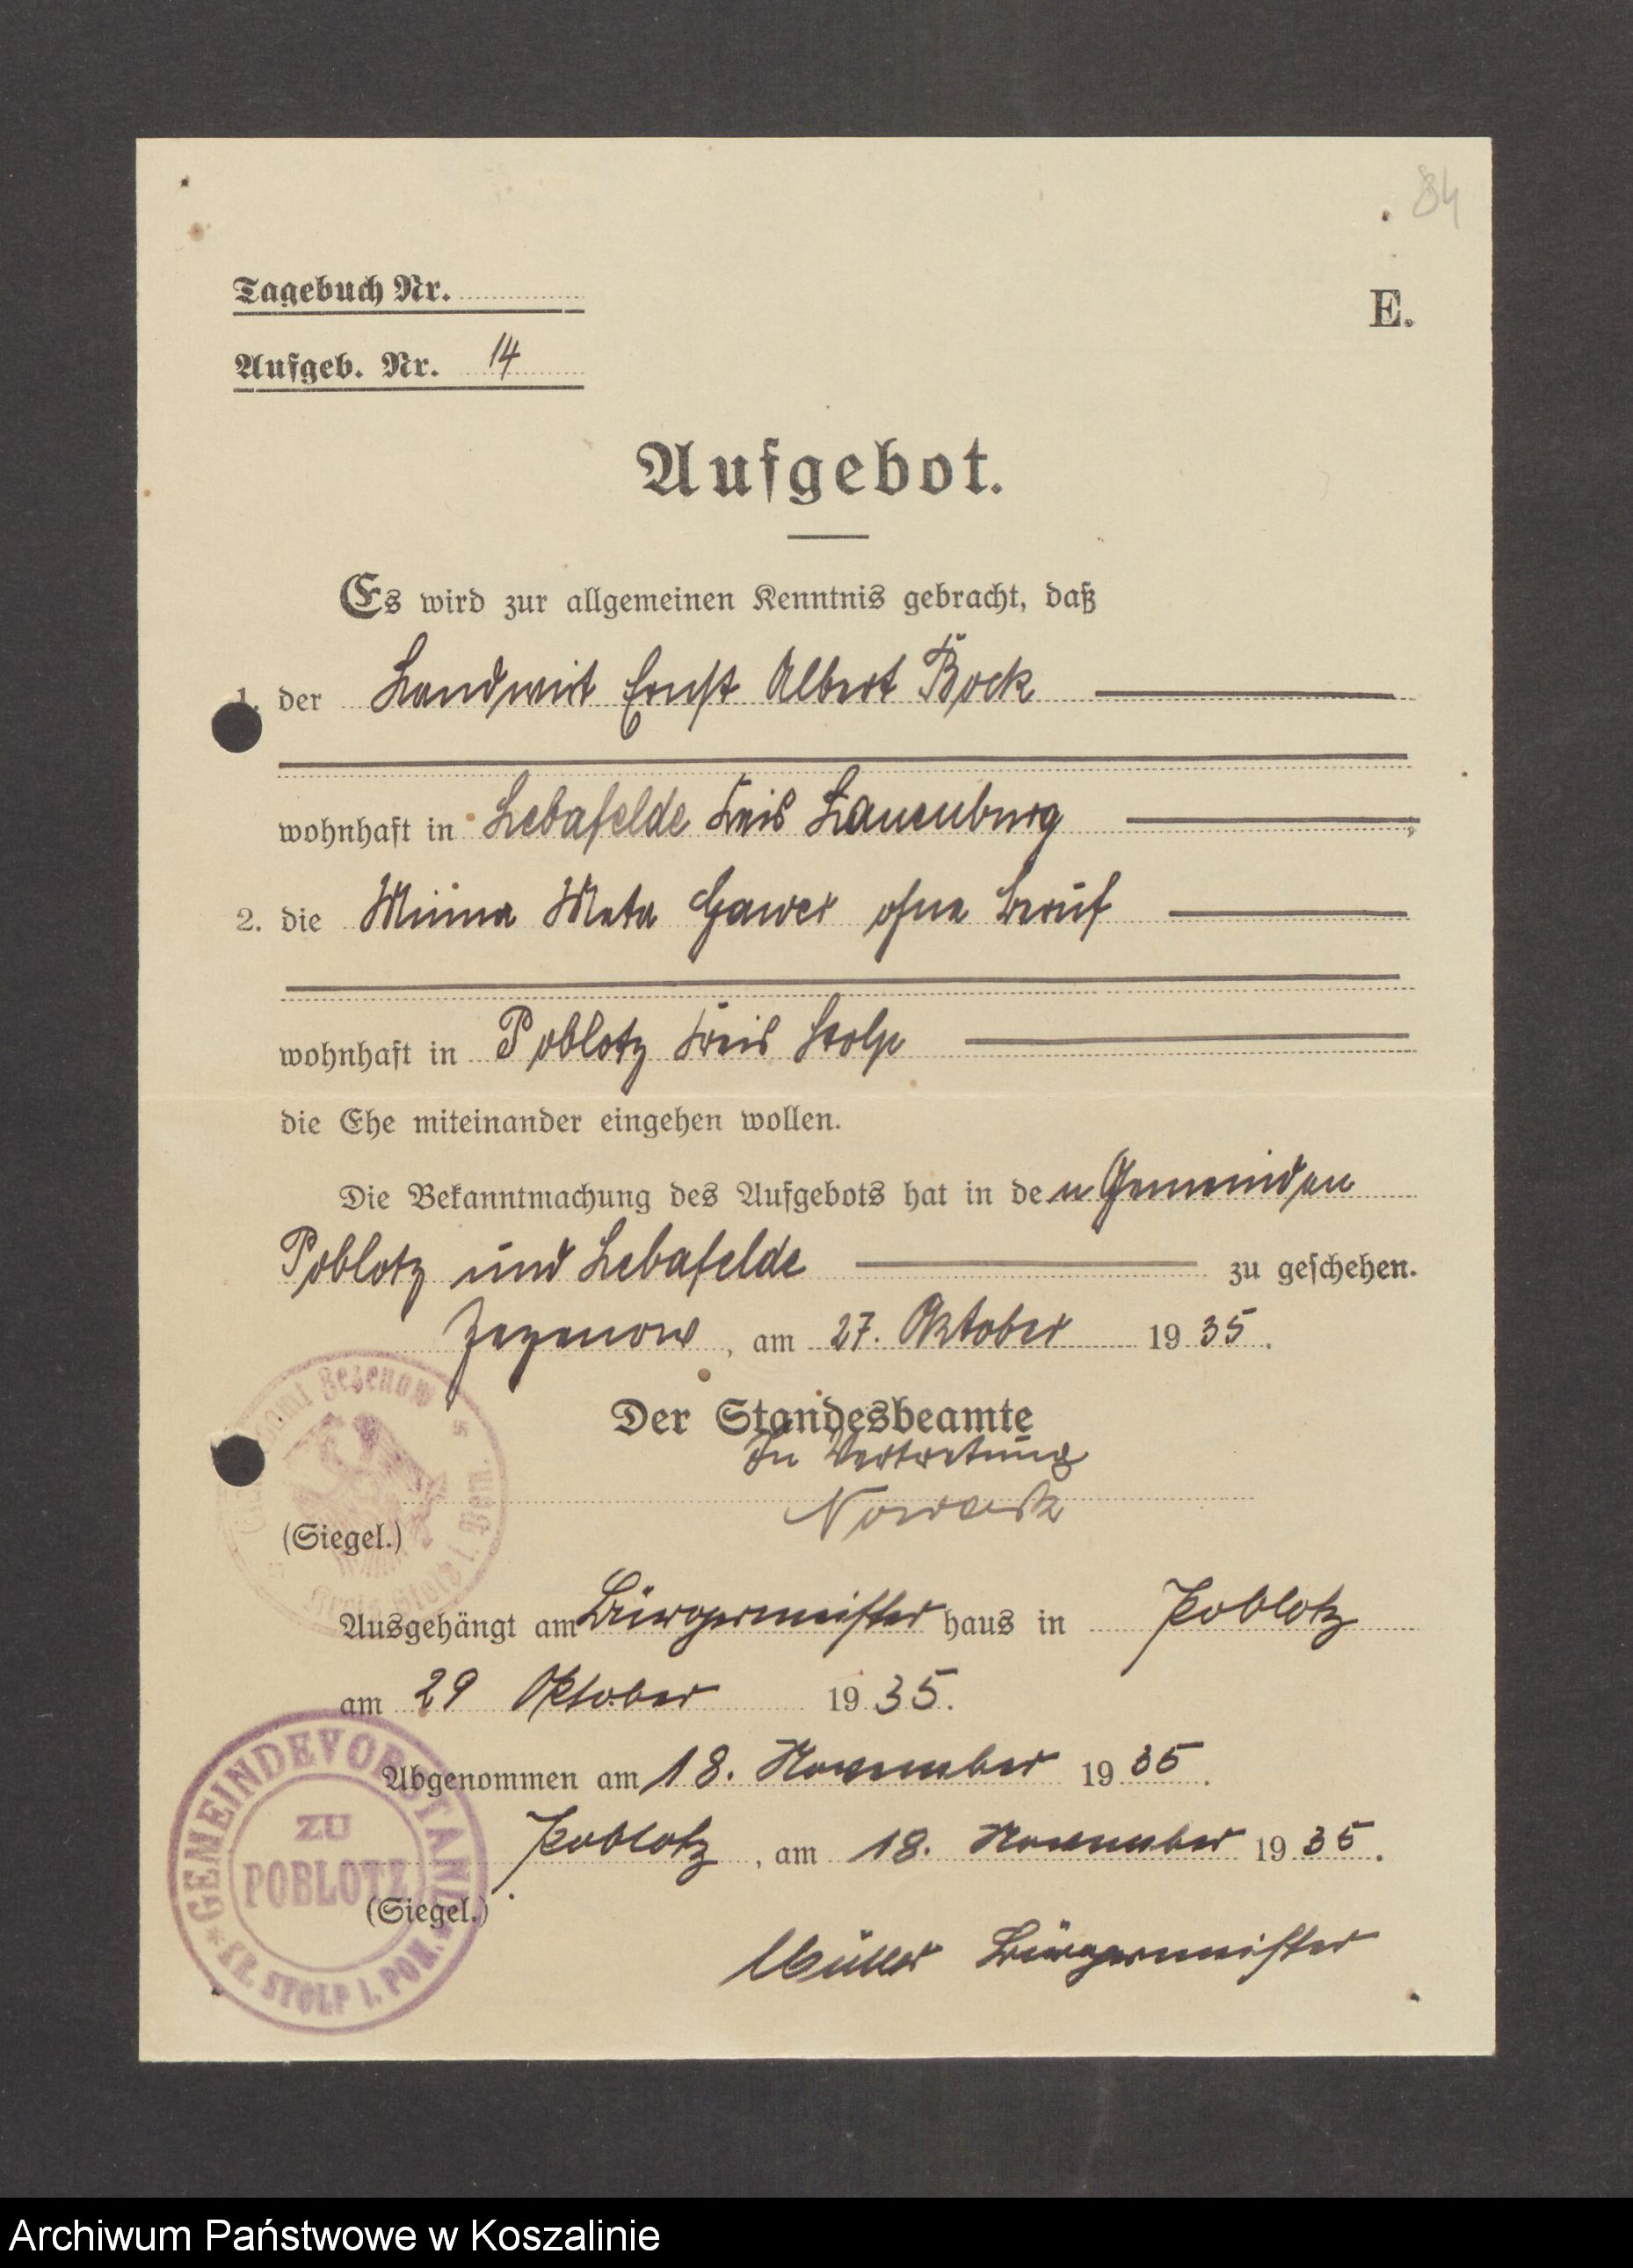 84
Tagebuch Nr.
E.
Aufgeb. Nr. 14
Aufgebot.
Es wird zur allgemeinen Kenntnis gebracht, daß
1. der Landwirt Ernst Albert Bock
wohnhaft in Lebafelde Kreis Lauenburg
2. die Minna Meta Gawer ohne Beruf
wohnhaft in Poblotz Kreis Stolp
die Ehe miteinander eingehen wollen.
Die Bekanntmachung des Aufgebots hat in den Gemeinden
Poblotz und Lebafelde zu geschehen.
Zezenow, am 27. Oktober 1935.
Der Standesbeamte
In Vertretung
(Siegel.)
Zezenow
Kreis Stolp i. Pom.
Ausgehängt am Bürgermeister haus in Poblotz
am 29 Oktober 1935.
Abgenommen am 18. November 1935.
Poblotz, am 18. November 1935.
(Siegel.)
GEMEINDEVORSTAND
ZU
POBLOTZ
* KR. STOLP i. POM. *
Müller Bürgermeister
Archiwum Państwowe w Koszalinie